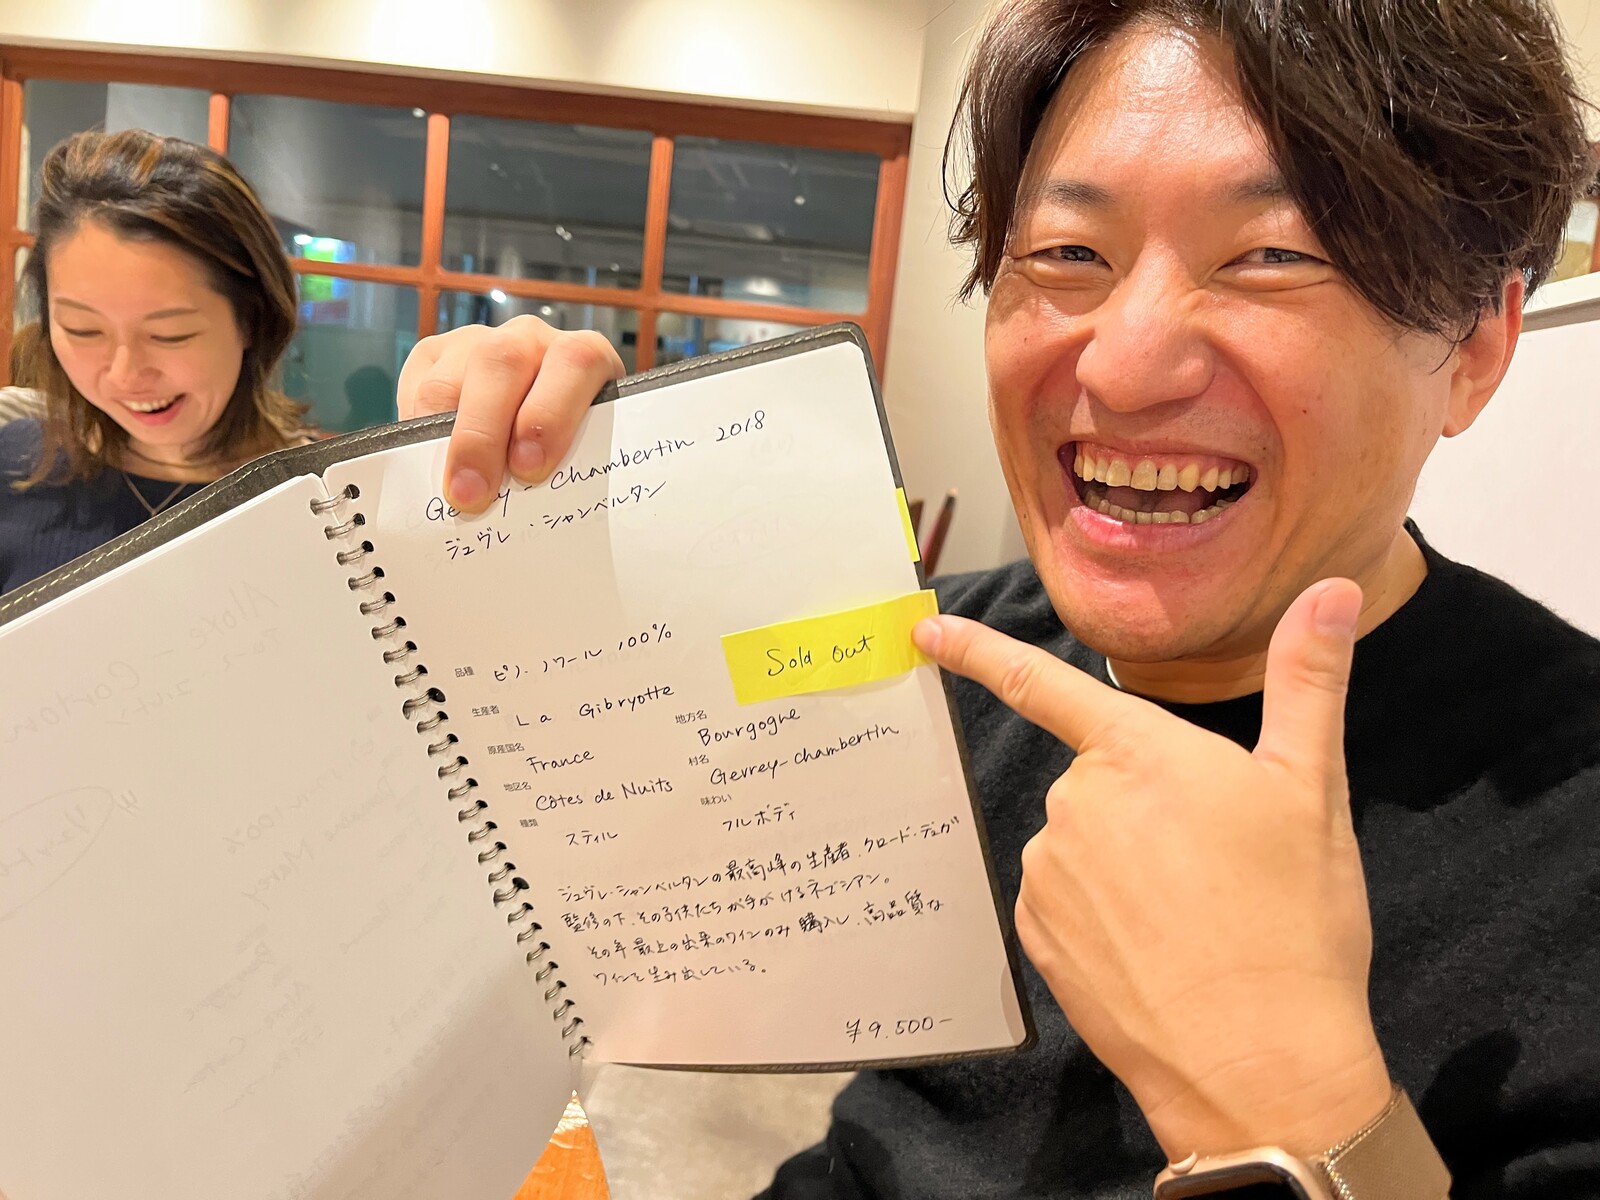 Gevrey-Chambertin 2018
ジュヴレ・シャンベルタン
Sold out
品種 ピノ・ノワール 100%
生産者 La Gibryotte
原産国名 France 地方名 Bourgogne
地区名 Côtes de Nuits 村名 Gevrey-chambertin
種類 スティル 味わい フルボディ
ジュヴレ・シャンベルタンの最高峰の生産者、クロード・デュガ
監修の下、その子供たちが手がけるネゴシアン。
その年最上の出来のワインのみ購入し、高品質な
ワインを生み出している。
¥9.500-
Aloxe-Corton